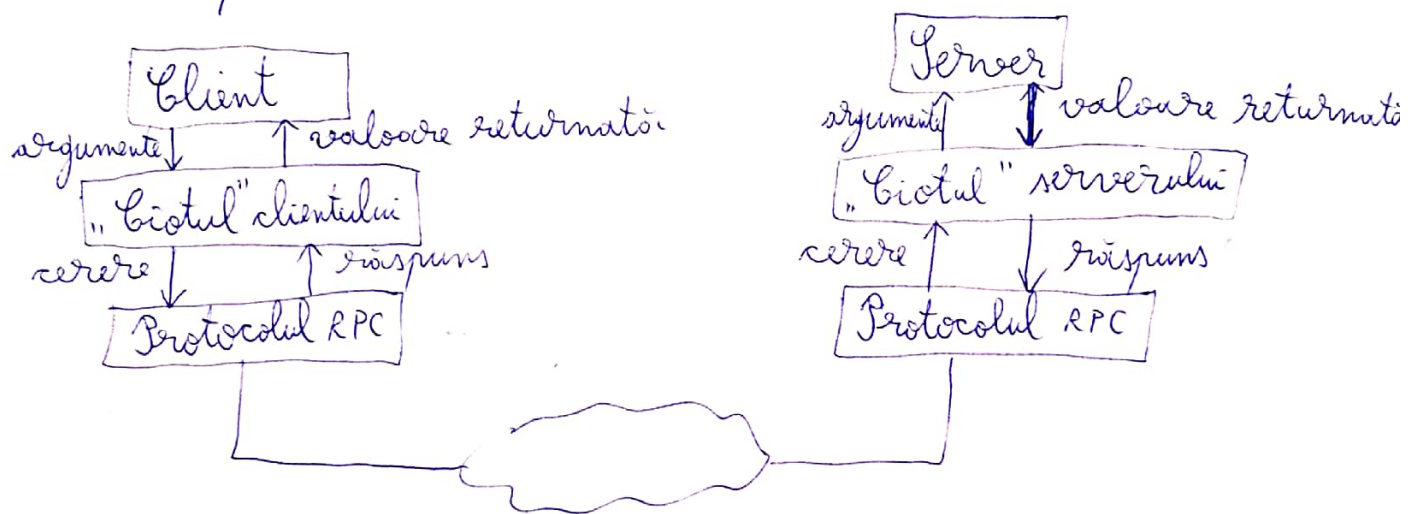 Client
argumente
valoare returnată
„Ciotul” clientului
cerere
răspuns
Protocolul RPC
Server
argumente
valoare returnată
„Ciotul” serverului
cerere
răspuns
Protocolul RPC